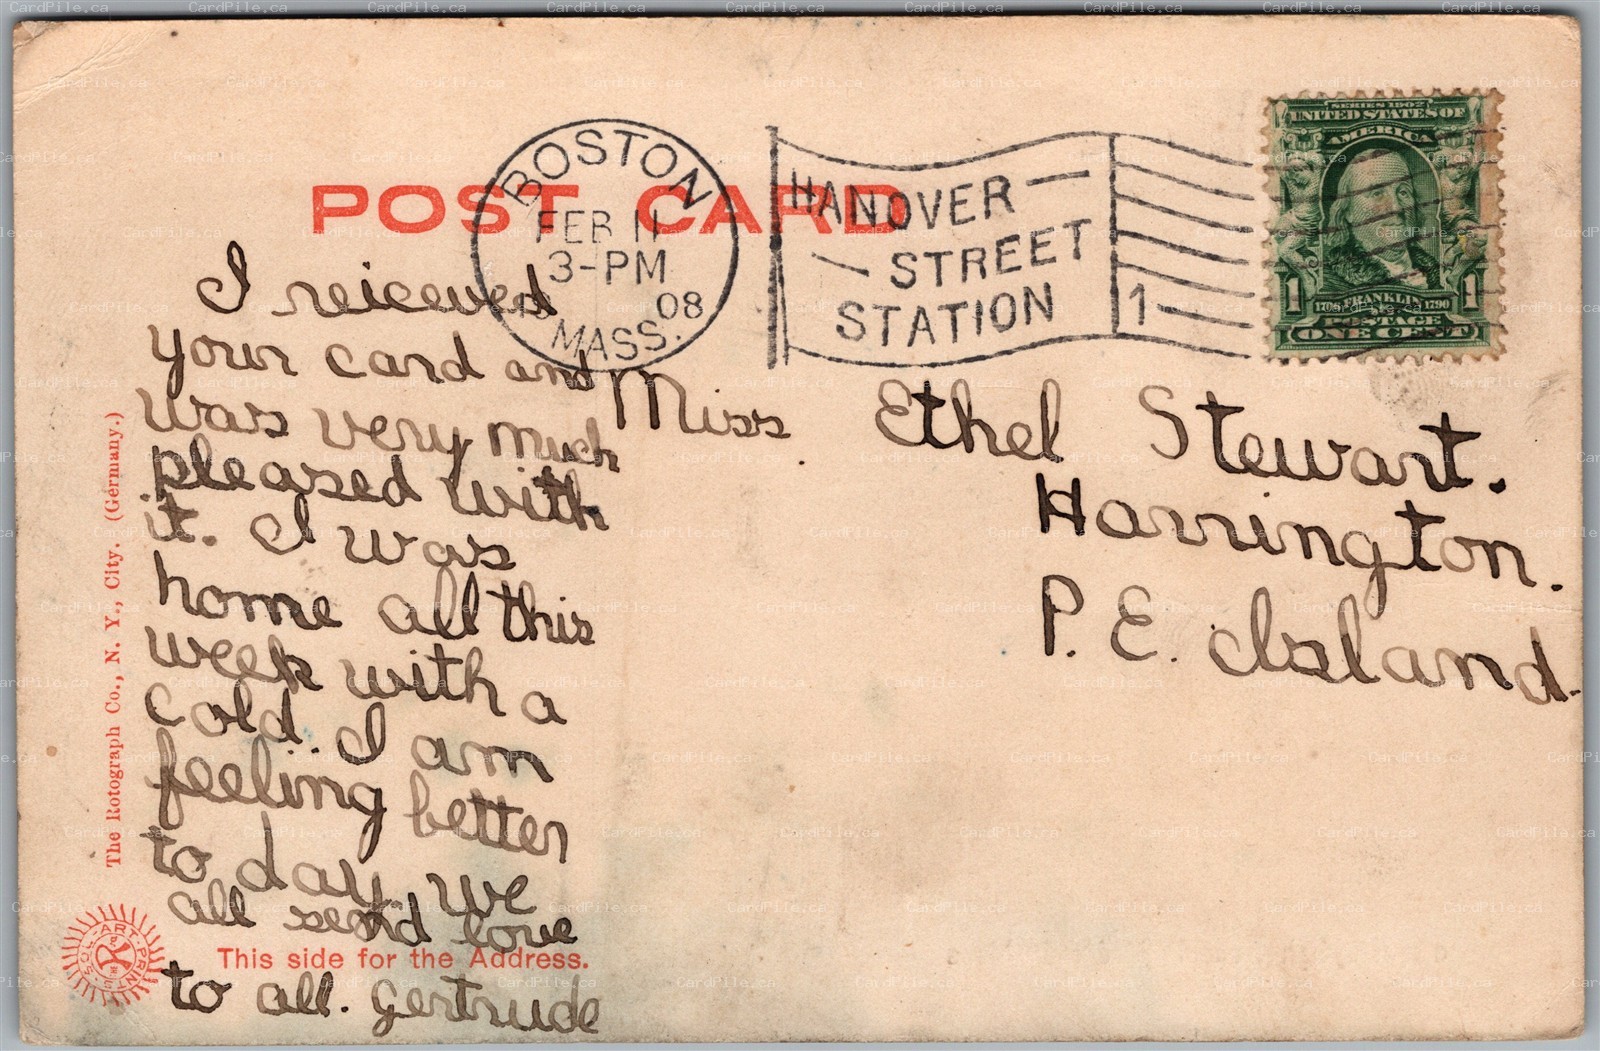 POST CARD
BOSTON
FEB 11
3-PM
08
MASS.
HANOVER
STREET
STATION
1
SERIES 1902
UNITED STATES OF
AMERICA
1 1
1706 FRANKLIN 1790
POSTAGE
ONE CENT
I reiceved
your card and
was very much
pleased with
it. I was
home all this
week with a
cold. I am
feeling better
to day we
all send love
to all. Gertrude
Miss Ethel Stewart.
Harrington.
P. E. Island.
The Rotograph Co., N. Y., City. (Germany.)
SOL-ART-PRINTS
This side for the Address.
CardPile.ca